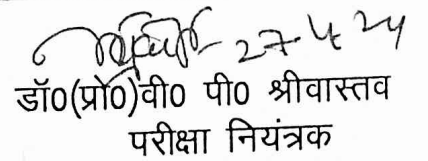 27.4.24
डॉ0(प्रो0)वी0 पी0 श्रीवास्तव
परीक्षा नियंत्रक